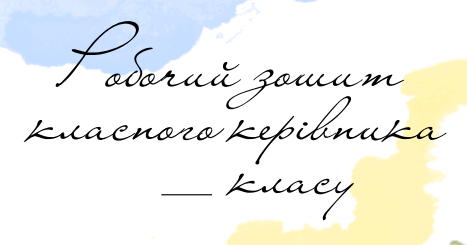 Робочий зошит
класного керівника
__ класу